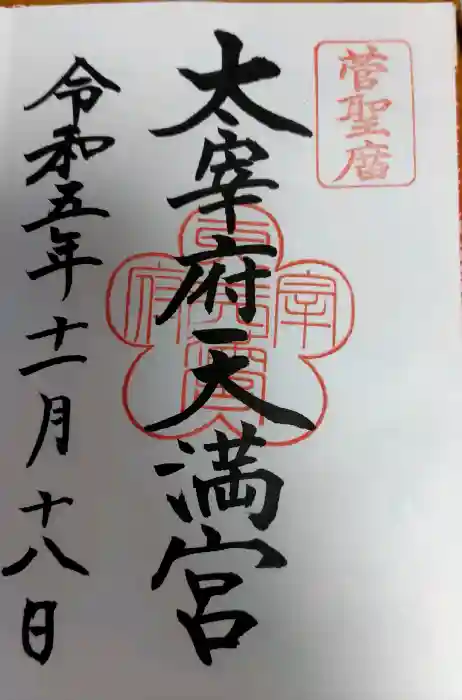 菅聖庿
太宰府天満宮
令和五年十一月十八日